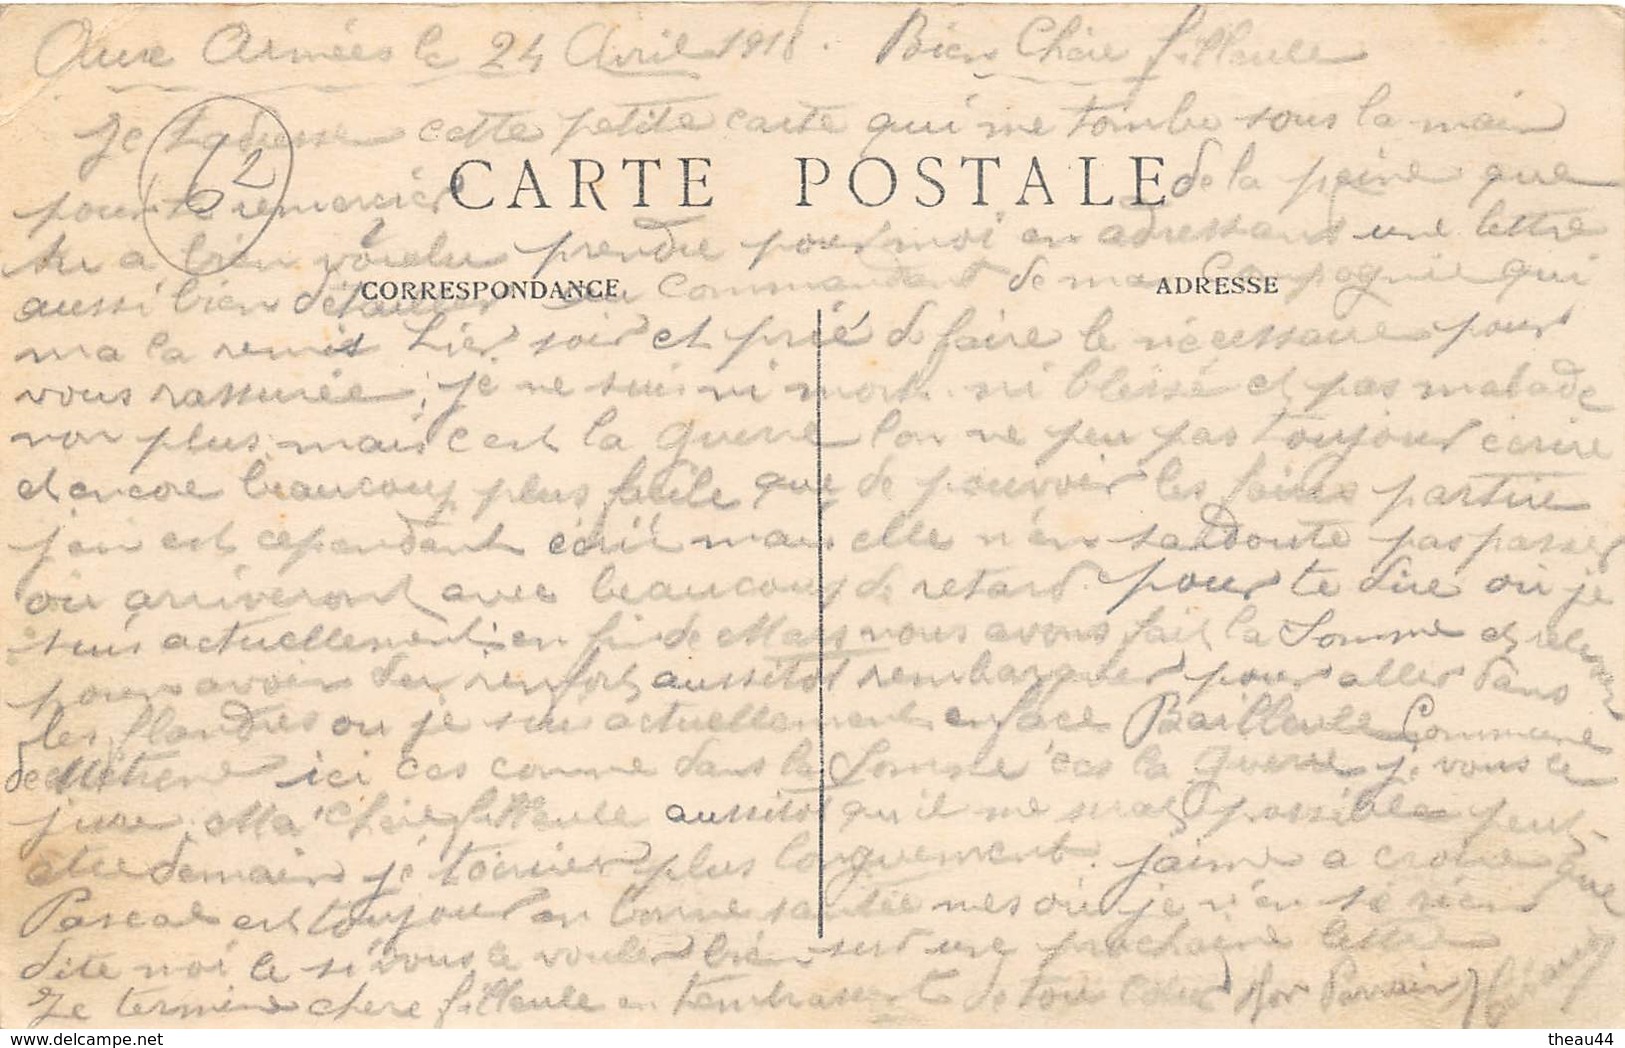 Aux Armées le 24 Avril 1918. Bien Chère filleule
Je tadresse cette petite carte qui me tombe sous la main
CARTE POSTALE
pour te remercier de la peine que
tu a bien voulu prendre pour moi en adressant une lettre
CORRESPONDANCE
ADRESSE
aussi bien détailler au Commandant de ma Compagnie qui
ma la remis hier soir et prié de faire le nécessaire pour
vous rassurée, je ne suis ni mort ni blessé et pas malade
non plus mais c'est la guerre lon ne peu pas toujour écrire
et encore beaucoup plus facile que de pouvoir les faires partire
j'en est cependant écrit mais elle n'on sandoute pas passer
ou arriveront avec beaucoup de retard. pour te dire ou je
suis actuellement: en fin de Mars nous avons fait la Somme et relever
pour avoir du renfort aussitot rembarquer pour aller dans
les flandres ou je suis actuellement enface Bailleule Commune
de Méterene ici cas comme dans la Somme c'es la guerre je vous le
jure. Ma Chère filleule aussitot qu'il me serat possible peut-
etre demain je t'ecrier plus longuement. j'aime a croire que
Pascal est toujour en bonne santée mes ou je n'en sé rien
dite moi le si vous le vouler bien sur une prochaine lettre
Je termine chere filleule en tembrasent de tou cœur ton Parrain
62
theau44